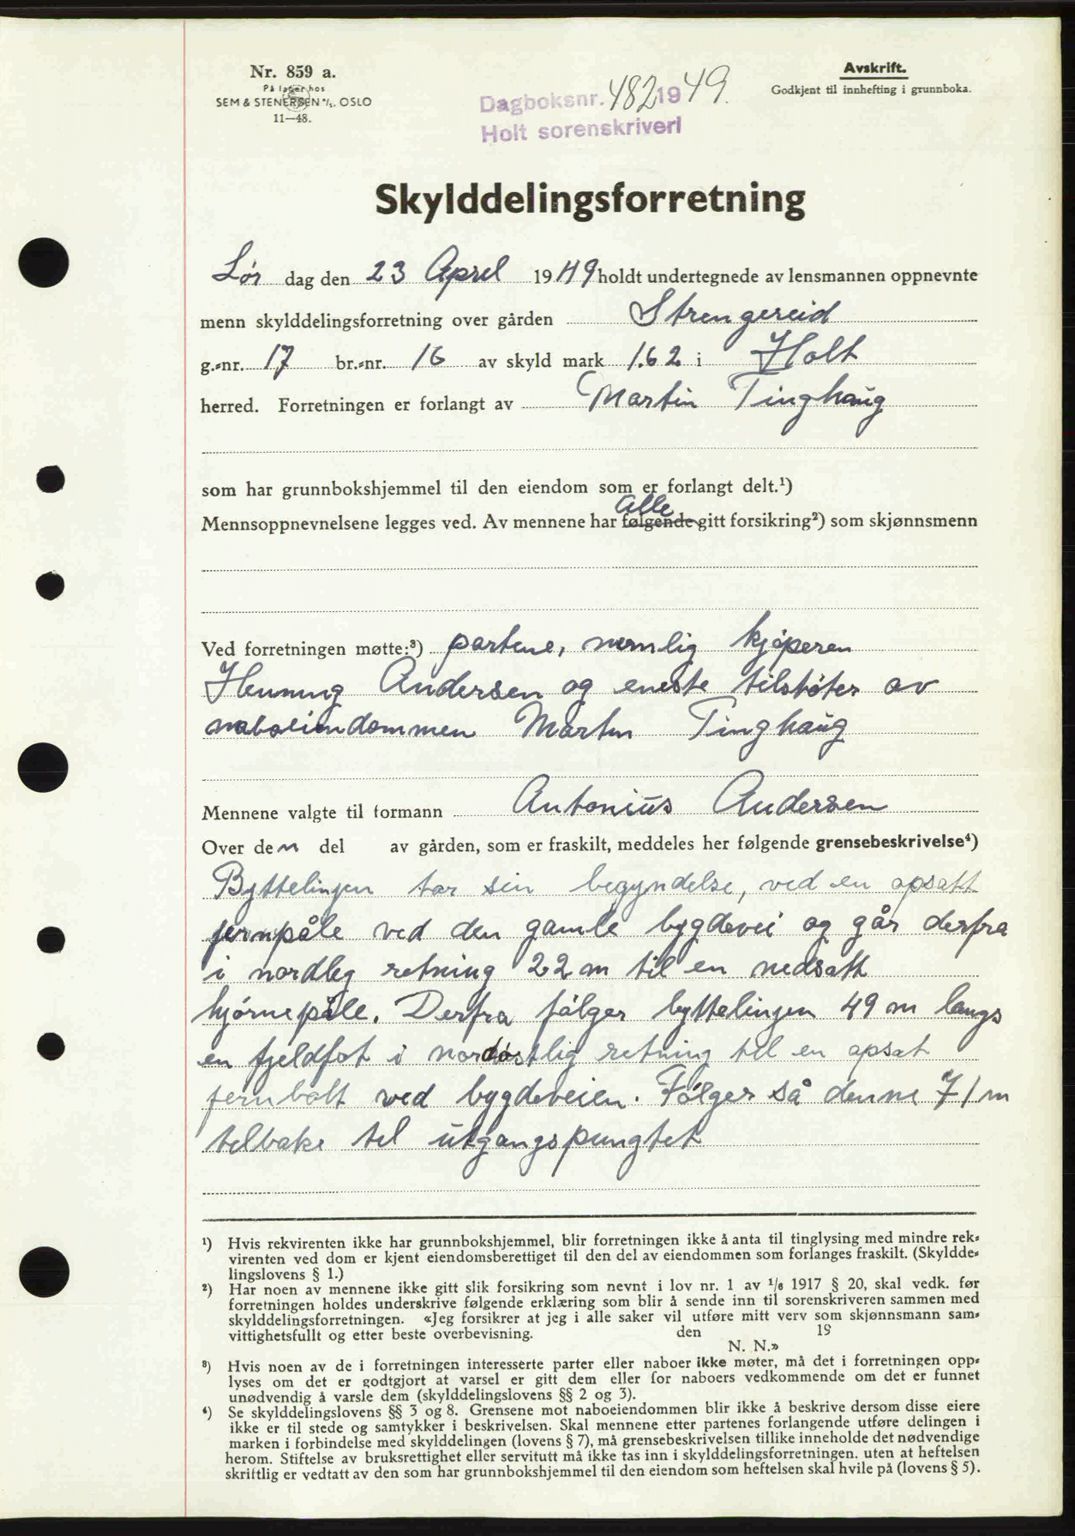 Nr. 859 a.
På lager hos
SEM & STENERSEN A/S. OSLO
11—48.
Dagboksnr. 482 1949.
Holt sorenskriveri
Avskrift.
Godkjent til innhefting i grunnboka.
Skylddelingsforretning
Lør dag den 23 April 1949 holdt undertegnede av lensmannen oppnevnte
menn skylddelingsforretning over gården Strengereid
g.-nr. 17 br.-nr. 16 av skyld mark 1.62 i Holt
herred. Forretningen er forlangt av Martin Tinghaug
som har grunnbokshjemmel til den eiendom som er forlangt delt.¹)
alle
Mennsoppnevnelsene legges ved. Av mennene har følgende gitt forsikring²) som skjønnsmenn
Ved forretningen møtte:³) partene, nemlig kjøperen
Henning Andersen og eneste tilstøter av
naboeiendommen Martin Tinghaug
Mennene valgte til formann Antonius Andersen
Over den del av gården, som er fraskilt, meddeles her følgende grensebeskrivelse⁴)
Byttelinjen tar sin begyndelse, ved en opsatt
jernpåle ved den gamle bygdevei og går derfra
i nordleg retning 22 m til en nedsatt
hjørnepåle. Derfra følger byttelinjen 49 m langs
en fjeldfot i nordøstlig retning til en opsat
jernbolt ved bygdeveien. Følger så denne 71 m
tilbake til utgangspungtet
¹) Hvis rekvirenten ikke har grunnbokshjemmel, blir forretningen ikke å anta til tinglysing med mindre rek-
virenten ved dom er kjent eiendomsberettiget til den del av eiendommen som forlanges fraskilt. (Skyldde-
lingslovens § 1.)
²) Har noen av mennene ikke gitt slik forsikring som nevnt i lov nr. 1 av 1/6 1917 § 20, skal vedk. før
forretningen holdes underskrive følgende erklæring som blir å sende inn til sorenskriveren sammen med
skylddelingsforretningen. «Jeg forsikrer at jeg i alle saker vil utføre mitt verv som skjønnsmann sam-
vittighetsfullt og etter beste overbevisning. den 19
N. N.»
³) Hvis noen av de i forretningen interesserte parter eller naboer ikke møter, må det i forretningen opp-
lyses om det er godtgjort at varsel er gitt dem eller for naboers vedkommende om det er funnet
unødvendig å varsle dem (skylddelingslovens §§ 2 og 3).
⁴) Se skylddelingslovens §§ 3 og 8. Grensene mot naboeiendommen blir ikke å beskrive dersom disse eiere
ikke er til stede og samtykker i beskrivelsen. Skal mennene etter partenes forlangende utføre delingen i
marken i forbindelse med skylddelingen (lovens § 7), må grensebeskrivelsen tillike inneholde det nødvendige
herom. Stiftelse av bruksrettighet eller servitutt må ikke tas inn i skylddelingsforretningen. uten at heftelsen
skriftlig er vedtatt av den som har grunnbokshjemmel til den eiendom som heftelsen skal hvile på (lovens § 5).